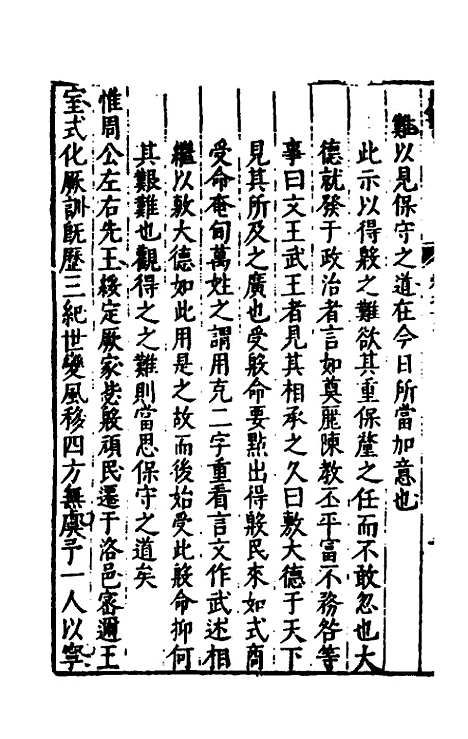 難以見保守之道在今日所當加意也
此示以得殷之難欲其重保釐之任而不敢忽也大
德就發于政治者言如奠麗陳教丕平富不務咎等
事曰文王武王者見其相承之久曰敷大德于天下
見其所及之廣也受殷命要點出得殷民來如式商
受命奄甸萬姓之謂用克二字重看言文作武述相
繼以敷大德如此用是之故而後始受此殷命抑何
其艱難也觀得之之難則當思保守之道矣
惟周公左右先王綏定厥家毖殷頑民遷于洛邑密邇王
室式化厥訓旣歷三紀世變風移四方無虞予一人以寧